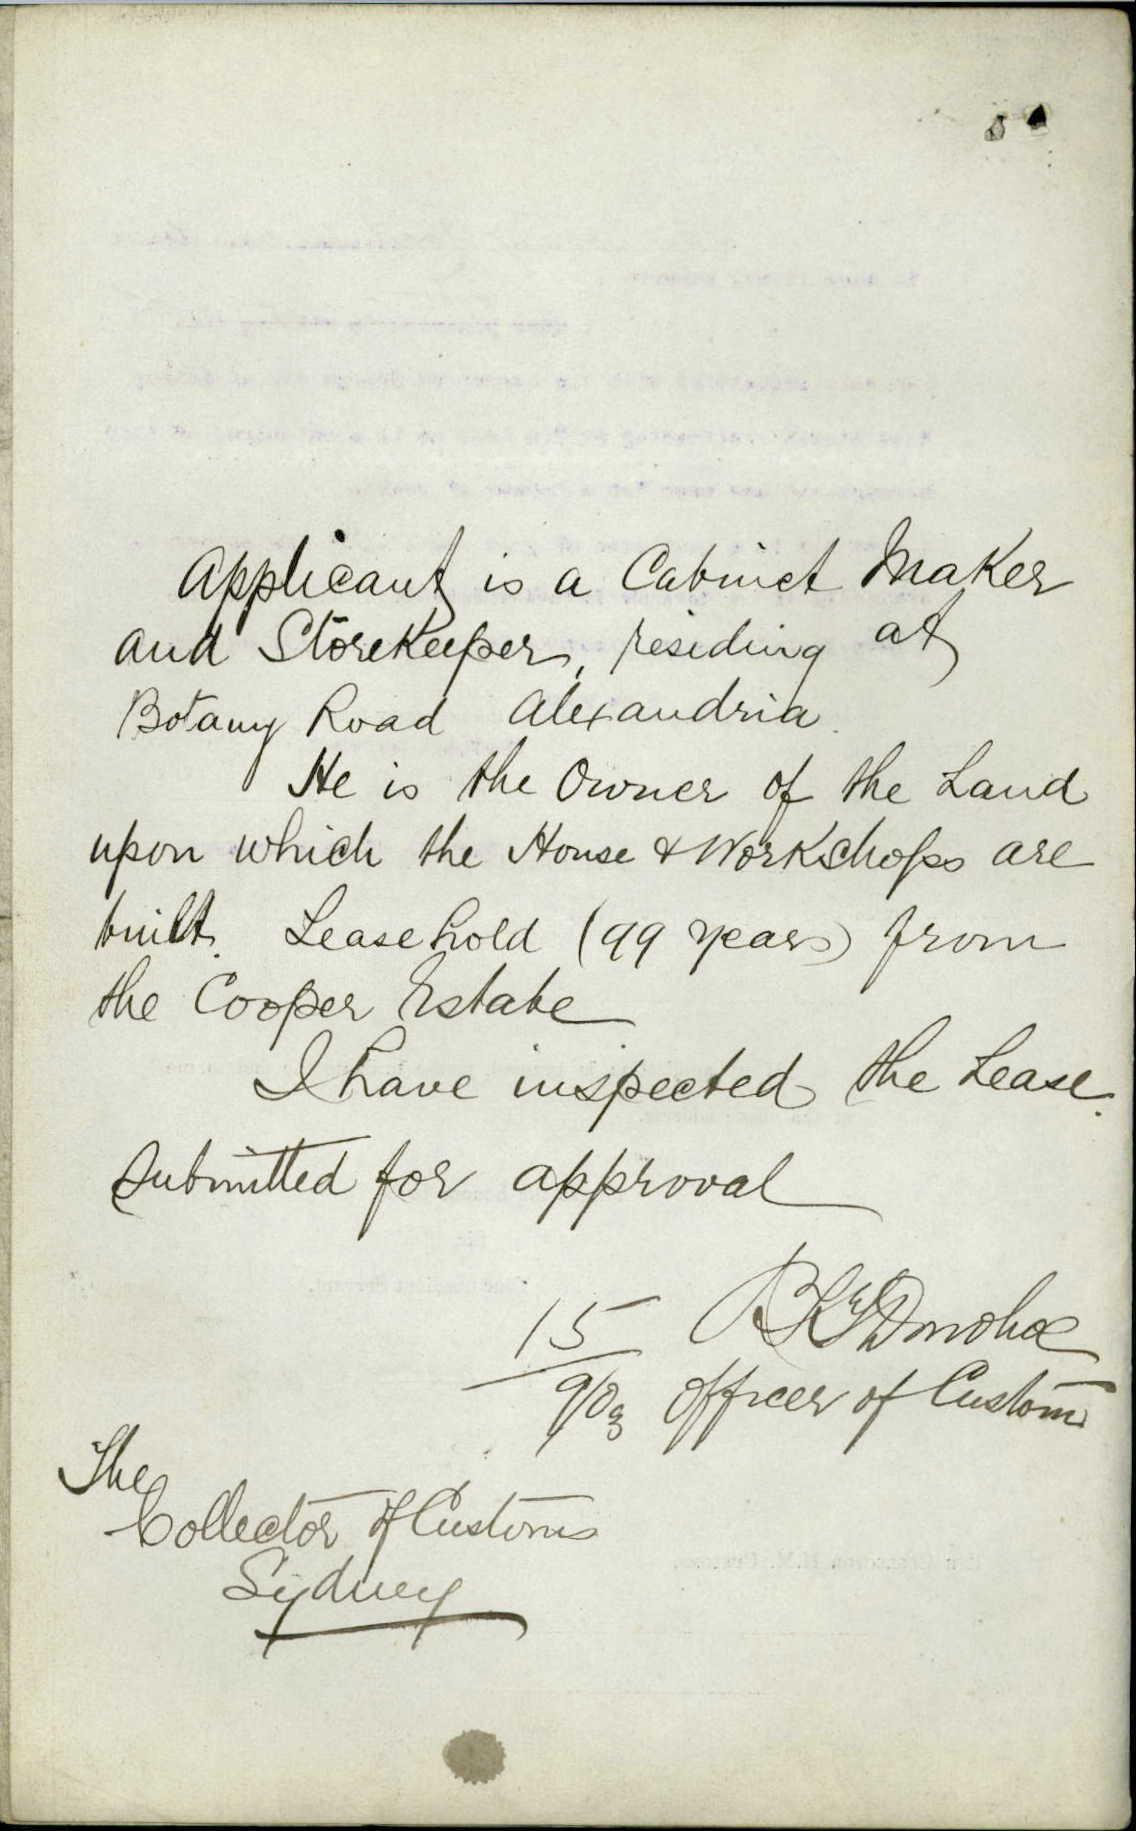 Applicant is a Cabinet Maker
and Storekeeper, residing at
Botany Road Alexandria.
He is the Owner of the Land
upon which the House & Workshops are
built. Leasehold (99 years) from
the Cooper Estate
I have inspected the Lease.
Submitted for approval
15 Donohoe
9/03 Officer of Customs
The
Collector of Customs
Sydney